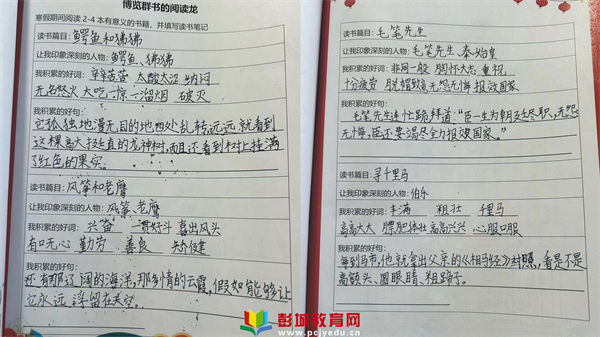 博览群书的阅读龙
寒假期间阅读2-4本有意义的书籍，并填写读书笔记
读书篇目：鳄鱼和狒狒
让我印象深刻的人物：鳄鱼、狒狒
我积累的好词：辛辛苦苦 太酸太涩 纳闷
无名怒火 大吃一惊 一溜烟 破灭
我积累的好句：
它孤独地漫无目的地四处乱转，远远就看到
这棵高大挺直的龙神树，而且还看到树上挂满
了红色的果实。
读书篇目：风筝和老鹰
让我印象深刻的人物：风筝、老鹰
我积累的好词：兴笛 一贯好斗 喜出风头
有口无心 勤劳 善良 矫健
我积累的好句：
还有那辽阔的海洋，那多情的云霞，假如能够让
它永远浮留在天空。
读书篇目：毛笔先生
让我印象深刻的人物：毛笔先生 秦始皇
我积累的好词：非同一般 胸怀大志 重视
十分疲劳 脱帽致意 无怨无悔 报效国家
我积累的好句：
毛笔先生连忙跪拜道：“臣一生为朝廷尽职，无怨
无悔，臣还要竭尽全力报效国家。”
读书篇目：寻千里马
让我印象深刻的人物：伯乐
我积累的好词：丰满 粗壮 千里马
高高大大 膘肥体壮 高高兴兴 心服口服
我积累的好句：
每到马市，他就拿出父亲的《相马经》对照，看是不是
高额头、圆眼睛、粗蹄子。
彭城教育网
www.pcjyedu.cn